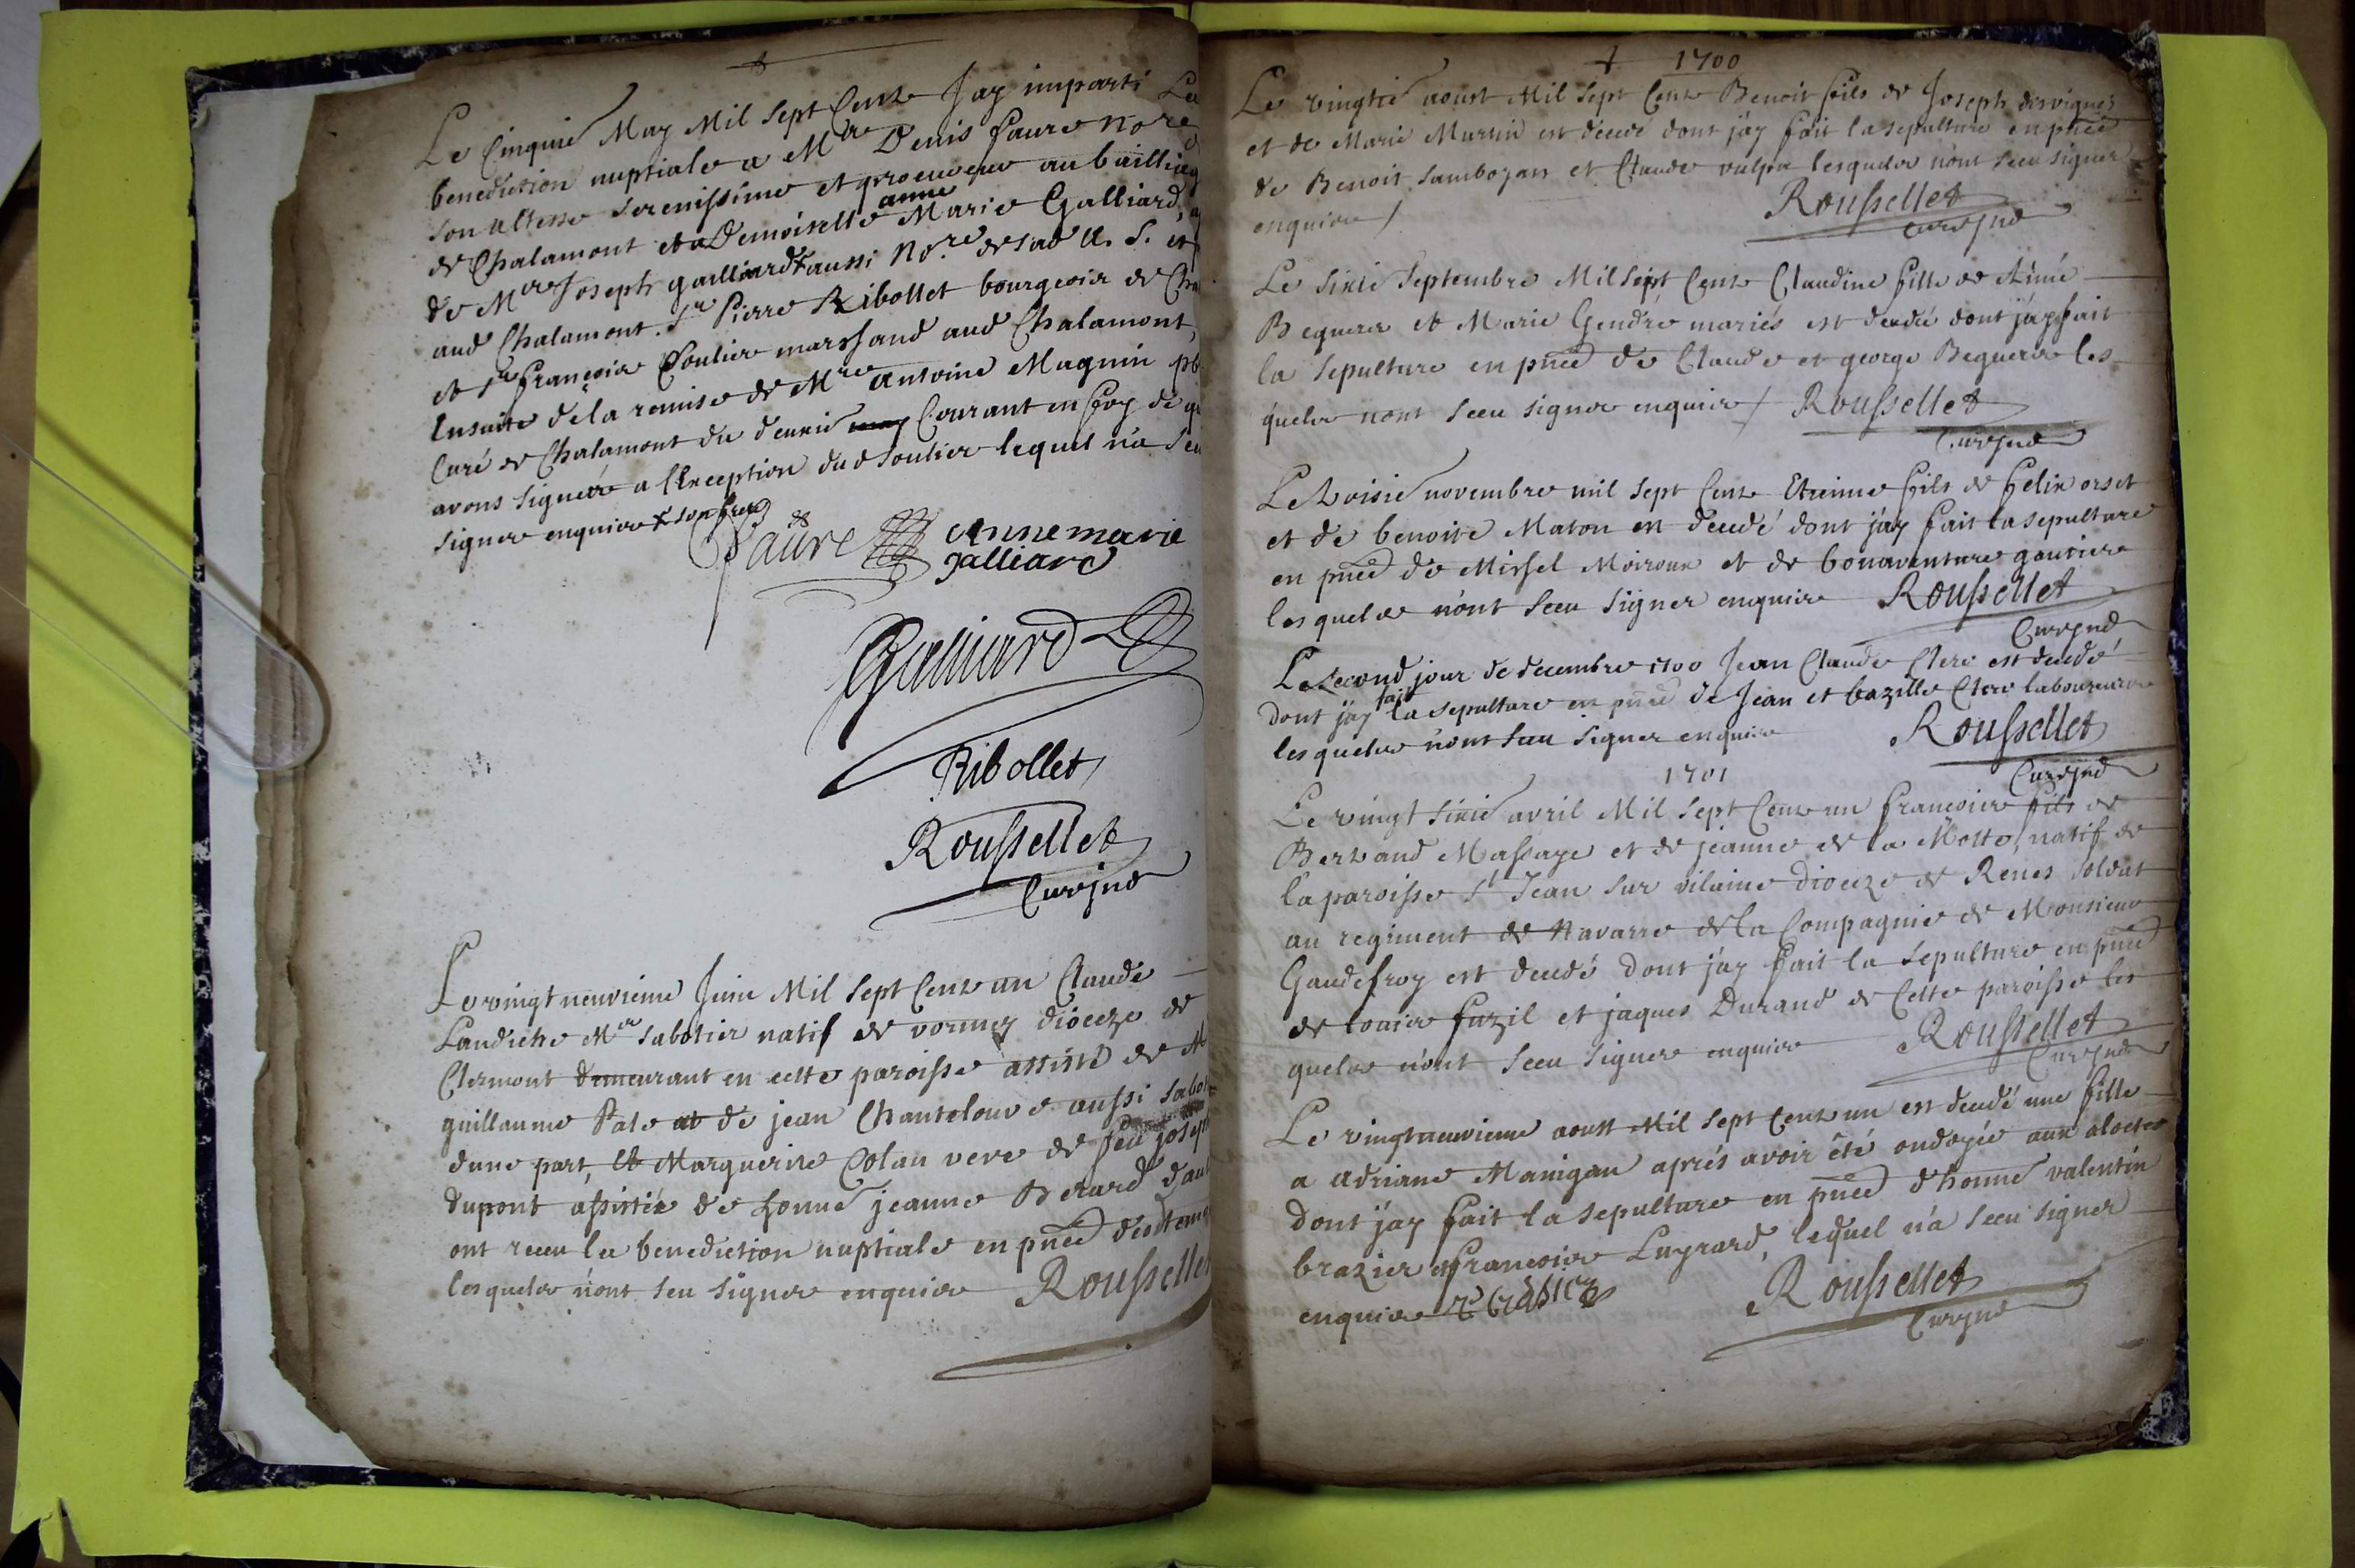 Le Cinquie May Mil Sept Cent Jay imparti La
benediction nuptiale a Mre Denis faure nore
son altesse serenissime et procureur au bailliag
de Chalamont et a Demoiselle anne Marie Galliard,
de Mre Joseph gailliard aussi Nore de sad A. S. et
aud Chalamont. Sr Pierre Ribollet bourgeois de Cha
et sr François Soulier marchand aud Chalamont,
Ensuite de la remise de Mre Antoine Magnin pb
Curé de Chalamont du deuxie Courant en foy de
avons signeés a l'Exception dud soulier lequel n'a seu
signer enquis
faure Anne marie
galliard
Galliard
Ribollet
Roussellet
Curé jné
Le vingt neuvieme Juin Mil Sept Cent un Claude
Landiche Mre sabotier natif de dioceze de
Clermont demeurant en cette paroisse assisté de
guillaume Pale et de jean Chanteloube aussi sabot
dune part, et Marguerite Colan veve de feu joseph
dupont assistée de honne jeanne Berard d'aut
ont receu la benediction nuptiale en pnce desd tem
lesquels n'ont seu signer enquis Roussellet
1700
Le vingtie aoust Mil Sept Cent Benoit fils de Joseph desvignes
et de Marie Martin est décedé dont j'ay fait la sepulture en pnce
de Benoit Sambozan et Claude vulpa lesquels n'ont sceu signer
enquis Roussellet
Curé jné
Le Sixie Septembre Mil sept Cent Claudine fille de Aimé
Bequerer et Marie Gendre mariés est decedé dont j'ay fait
la sepulture en pnce de Claude et george Bequerer les
quels n'ont sceu signer enquis Roussellet
Curé jné
Le troisie novembre mil sept Cent Etienne fils de felix orset
et de benoite Maton est decedé dont j'ay fait la sepulture
en pnce de Michel Moiroux et de bonaventure gautier
lesquels n'ont sceu signer enquis Roussellet
Curé jné
Le second jour de decembre 1700 Jean Claude Clerc est decedé
dont j'ay fait la sepulture en pnce de Jean et bazille Clerc laboureurs
lesquels n'ont sceu signer enquis Roussellet
1701 Curé jné
Le vingt sixie avril Mil Sept Cent un François fils de
Bertrand Massaye et de jeanne de la Motte, natif de
la paroisse St Jean sur vilaine dioceze de Renes soldat
au regiment de Navarre de la Compagnie de Monsieur
Gaudefroy est decedé dont j'ay fait la sepulture en pnce
de Louis fuzil et jaques Durand de Cette paroisse les
quels n'ont sceu signer enquis Roussellet
Curé jné
Le vingtneuvieme aoust Mil Sept Cent un est decedé une fille
a adriane Manigan aprés avoir été ondoyée
dont j'ay fait la sepulture en pnce d'honne valentin
brazier et François Luyrard, lequel n'a sceu signer
enquis v brasier Roussellet
Curé jné